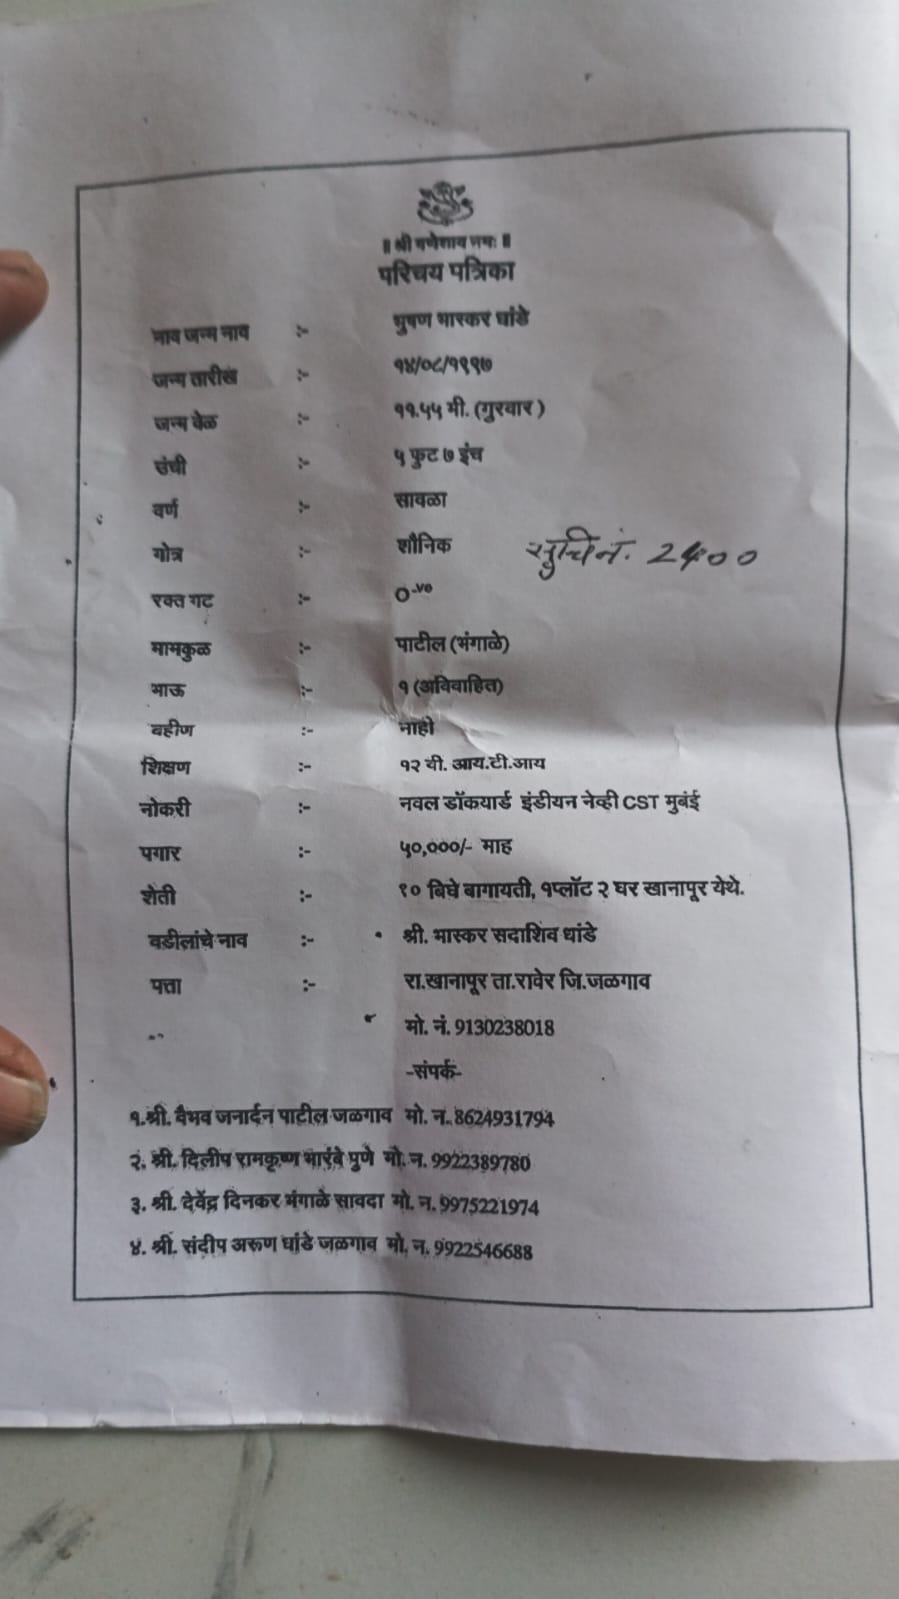 ॥ श्री गणेशाय नमः ॥
परिचय पत्रिका
नाव जन्म नाव :- भुषण भास्कर धांडे
जन्म तारीख :- १४/०८/१९९७
जन्म वेळ :- ११.५५ मी. (गुरवार)
उंची :- ५ फुट ७ इंच
वर्ण :- सावळा
गोत्र :- शौनिक सुचि नं. 2400
रक्त गट :- O-ve
मामकुळ :- पाटील (भंगाळे)
भाऊ :- १ (अविवाहित)
बहीण :- नाही
शिक्षण :- १२ वी. आय.टी.आय
नोकरी :- नवल डॉकयार्ड इंडीयन नेव्ही CST मुबंई
पगार :- ५०,०००/- माह
शेती :- १० बिघे बागायती, १प्लॉट २ घर खानापूर येथे.
वडीलांचे नाव :- श्री. भास्कर सदाशिव धांडे
पत्ता :- रा.खानापूर ता.रावेर जि.जळगाव
मो. नं. 9130238018
-संपर्क-
१.श्री. वैभव जनार्दन पाटील जळगाव मो. न. 8624931794
२. श्री. दिलीप रामकृष्ण भारंबे पुणे मो. न. 9922389780
३. श्री. देवेंद्र दिनकर भंगाळे सावदा मो. न. 9975221974
४. श्री. संदीप अरूण धांडे जळगाव मो. न. 9922546688